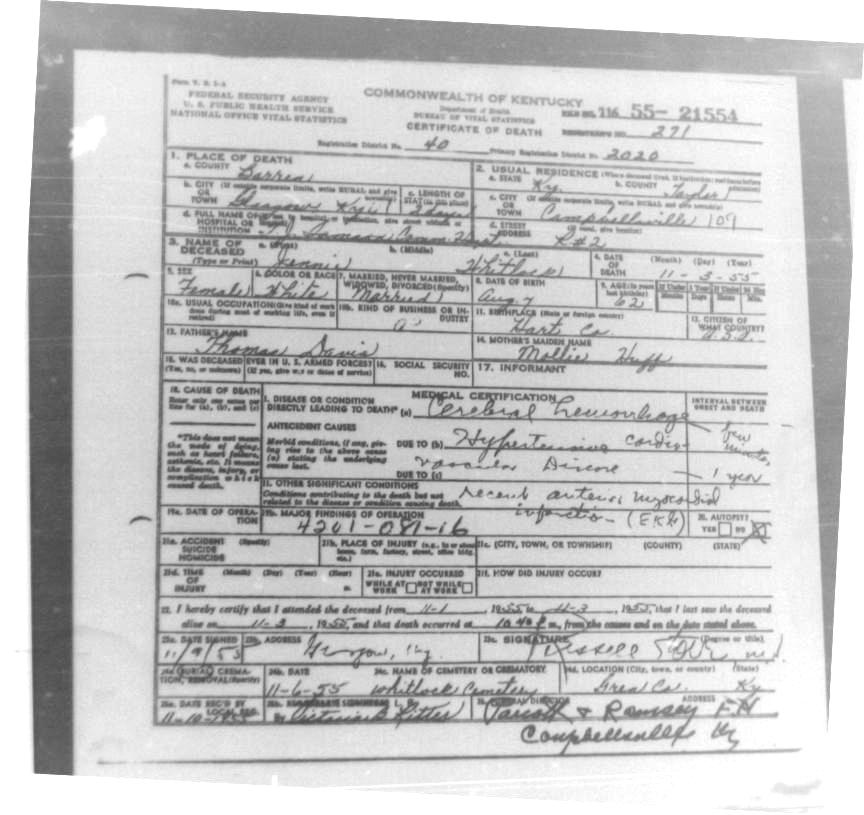 Form V. S. 1-A
FEDERAL SECURITY AGENCY
U. S. PUBLIC HEALTH SERVICE
NATIONAL OFFICE VITAL STATISTICS
COMMONWEALTH OF KENTUCKY
Department of Health
BUREAU OF VITAL STATISTICS
CERTIFICATE OF DEATH
FILE NO. 116 55- 21554
REGISTRAR'S NO. 271
Registration District No. 40 Primary Registration District No. 2020
1. PLACE OF DEATH
a. COUNTY Barren
2. USUAL RESIDENCE (Where deceased lived. If institution: residence before admission)
a. STATE Ky. b. COUNTY Taylor
b. CITY (If outside corporate limits, write RURAL and give township) OR TOWN Glasgow Ky
c. LENGTH OF STAY (in this place) 3 days
c. CITY (If outside corporate limits, write RURAL and give township) OR TOWN Campbellsville 109
d. FULL NAME OF HOSPITAL OR INSTITUTION T. J. Samson Comm Hospt
d. STREET ADDRESS (If rural, give location) R#2
3. NAME OF DECEASED (Type or Print)
a. (First) Jennie b. (Middle) c. (Last) Whitlock
4. DATE OF DEATH (Month) (Day) (Year) 11-3-55
5. SEX Female
6. COLOR OR RACE White
7. MARRIED, NEVER MARRIED, WIDOWED, DIVORCED (Specify) Married
8. DATE OF BIRTH Aug 7
9. AGE (In years last birthday) 62
If Under 1 Year Months Days
If Under 24 Hrs. Hours Min.
10a. USUAL OCCUPATION (Give kind of work done during most of working life, even if retired)
10b. KIND OF BUSINESS OR INDUSTRY
11. BIRTHPLACE (State or foreign country) Hart Co.
12. CITIZEN OF WHAT COUNTRY? U.S.A.
13. FATHER'S NAME Thomas Davis
14. MOTHER'S MAIDEN NAME Mollie Huff
15. WAS DECEASED EVER IN U. S. ARMED FORCES?
(Yes, no, or unknown) (If yes, give war or dates of service)
16. SOCIAL SECURITY NO.
17. INFORMANT
18. CAUSE OF DEATH
Enter only one cause per line for (a), (b), and (c)
MEDICAL CERTIFICATION
INTERVAL BETWEEN ONSET AND DEATH
I. DISEASE OR CONDITION
DIRECTLY LEADING TO DEATH* (a) Cerebral hemorrhage few minutes
*This does not mean the mode of dying, such as heart failure, asthenia, etc. It means the disease, injury, or complication which caused death.
ANTECEDENT CAUSES
Morbid conditions, if any, giving rise to the above cause (a) stating the underlying cause last.
DUE TO (b) Hypertensive cardio-
DUE TO (c) vascular Disease - 1 year
II. OTHER SIGNIFICANT CONDITIONS
Conditions contributing to the death but not related to the disease or condition causing death.
recent anterior myocardial
infarction - (EKG)
19a. DATE OF OPERATION
19b. MAJOR FINDINGS OF OPERATION
4201-081-16
20. AUTOPSY?
YES NO X
21a. ACCIDENT SUICIDE HOMICIDE (Specify)
21b. PLACE OF INJURY (e.g., in or about home, farm, factory, street, office bldg. etc.)
21c. (CITY, TOWN, OR TOWNSHIP) (COUNTY) (STATE)
21d. TIME OF INJURY (Month) (Day) (Year) (Hour) m.
21e. INJURY OCCURRED
WHILE AT WORK NOT WHILE AT WORK
21f. HOW DID INJURY OCCUR?
22. I hereby certify that I attended the deceased from 11-1, 1955 to 11-3, 1955, that I last saw the deceased
alive on 11-3, 1955, and that death occurred at 10:40 P m., from the causes and on the date stated above.
23a. DATE SIGNED 11/9/55
23b. ADDRESS Glasgow, Ky.
23c. SIGNATURE (Degree or title) M.D.
24a. BURIAL, CREMATION, REMOVAL (Specify)
24b. DATE 11-6-55
24c. NAME OF CEMETERY OR CREMATORY Whitlock Cemetery
24d. LOCATION (City, town, or county) (State) Green Co. Ky
25a. DATE REC'D BY LOCAL REG. 11-10-1955
25b. REGISTRAR'S SIGNATURE
By Victoria B Ritter
26. FUNERAL DIRECTOR ADDRESS
Parrott & Ramsey F.H
Campbellsville Ky